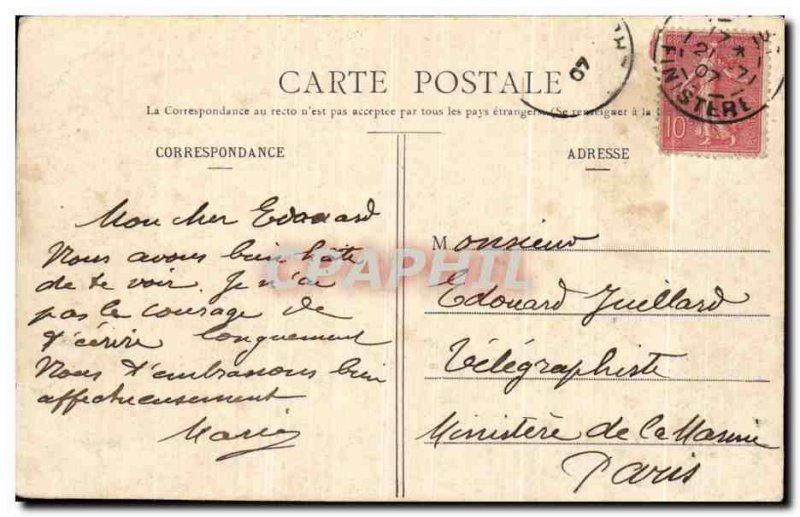 CARTE POSTALE
La Correspondance au recto n'est pas acceptée par tous les pays étrangers (Se renseigner à la
CORRESPONDANCE
ADRESSE
Mon cher Edouard
Nous avons bien hâte
de te voir. Je n'ai
pas le courage de
t'écrire longuement
Nous t'embrassons bien
affectueusement
Marie
Monsieur
Edouard Juillard
Télégraphiste
Ministère de la Marine
Paris
07
17 *
21 - 7
07
FINISTERE
10
CPAPHIL